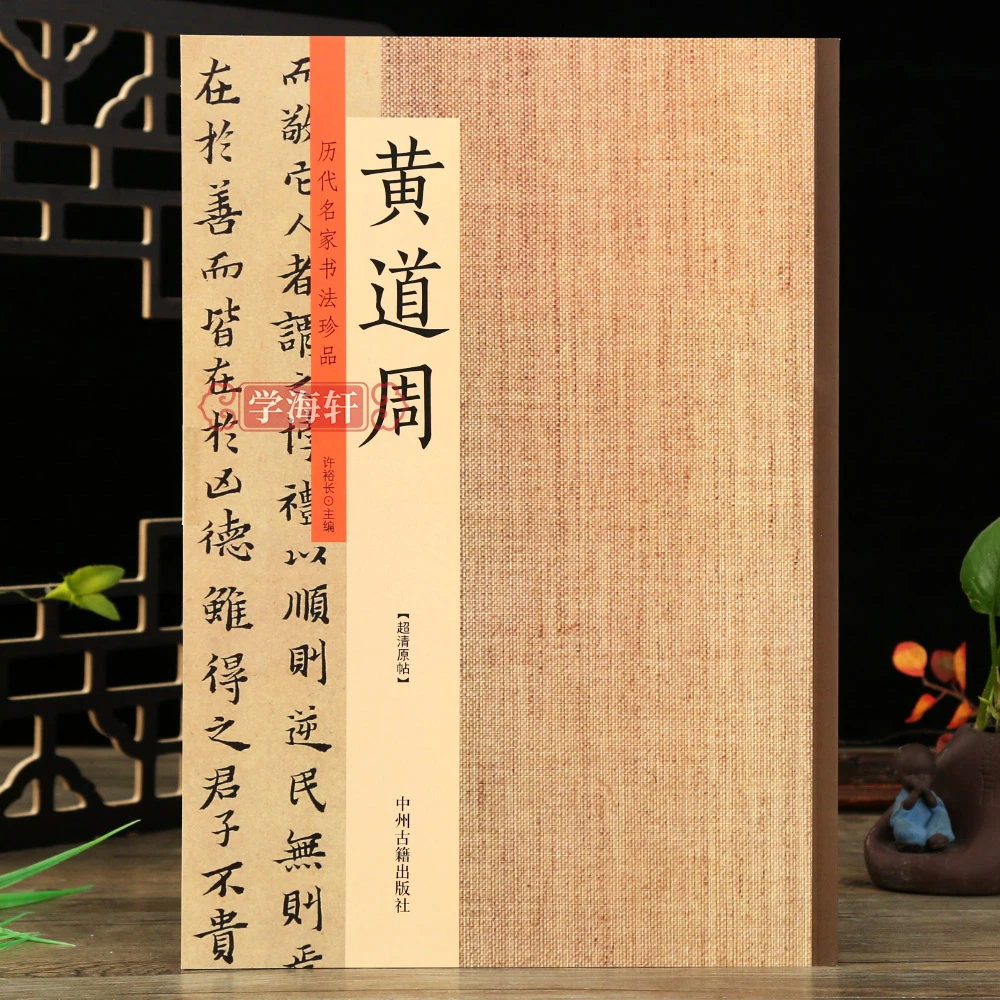 黄道周
历代名家书法珍品
许裕长⊙主编
【超清原帖】
中州古籍出版社
而敬它人者謂之悖禮以順則逆民無則
在於善而皆在於凶德雖得之君子不貴
学海轩